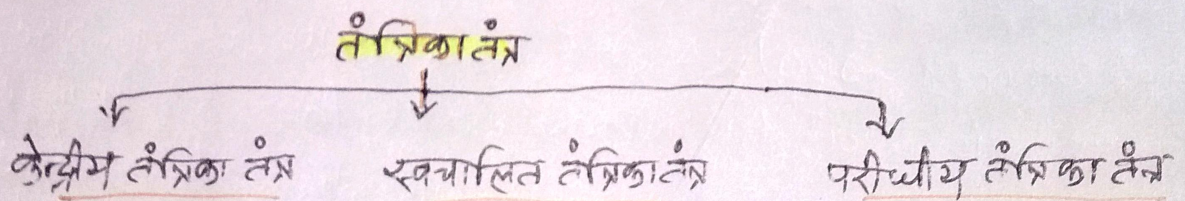 तंत्रिका तंत्र
केन्द्रीय तंत्रिका तंत्र स्वचालित तंत्रिका तंत्र परीधीय तंत्रिका तंत्र